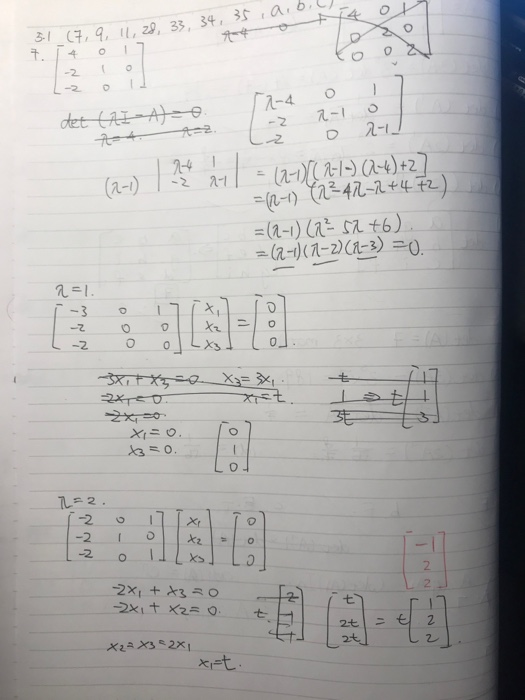 3.1 (7, 9, 11, 28, 33, 34, 35, a, b, c)
7. [4 0 1
-2 1 0
-2 0 1]
[4 0 1
0 2 0
0 0 2]
det (λI-A) = 0
λ=4. λ=2.
[λ-4 0 1
-2 λ-1 0
-2 0 λ-1]
(λ-1) |λ-4 1
-2 λ-1| = (λ-1)[(λ-1)(λ-4)+2]
=(λ-1) (λ²-4λ-λ+4+2)
=(λ-1)(λ²-5λ+6)
=(λ-1)(λ-2)(λ-3) = 0.
λ=1.
[-3 0 1
-2 0 0
-2 0 0] [x₁
x₂
x₃] = [0
0
0]
-3x₁+x₃=0. x₃=3x₁.
-2x₁=0 x₁=t.
-2x₁=0
t
1
3t ⇒ t [1
1
3]
x₁=0.
x₃=0.
[0
1
0]
λ=2.
[-2 0 1
-2 1 0
-2 0 1] [x₁
x₂
x₃] = [0
0
0]
[-1
2
2]
-2x₁+x₃=0
-2x₁+x₂=0.
x₂=x₃=2x₁
x₁=t.
[t
2t
2t] = t [1
2
2].